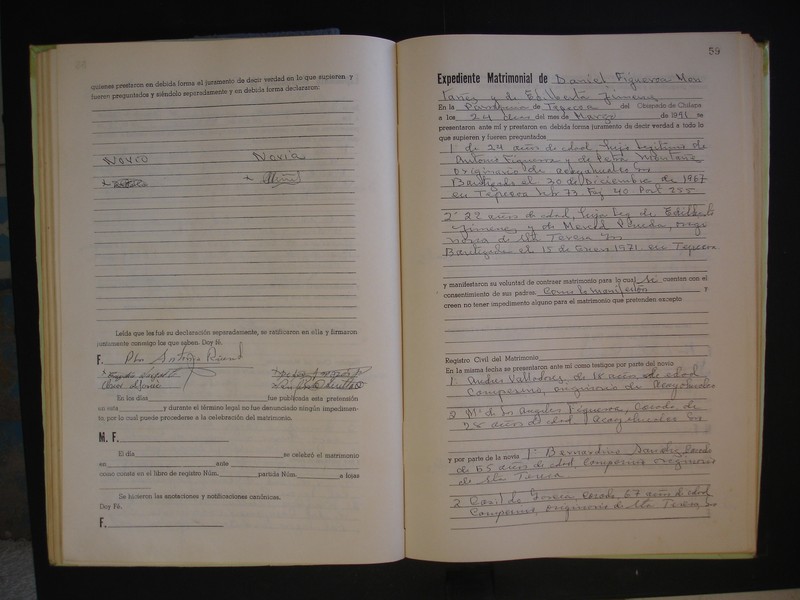 quienes prestaron en debida forma el juramento de decir verdad en lo que supieren y
fueren preguntados y siéndolo separadamente y en debida forma declararon:
Novio Novia
Leída que les fué su declaración separadamente, se ratificaron en ella y firmaron
juntamente conmigo los que saben. Doy fé.
F. Pbro
En los días fue publicada esta pretensión
en esta y durante el término legal no fue denunciado ningún impedimen-
to, por lo cual puede procederse a la celebración del matrimonio.
M. F.
El día se celebró el matrimonio
en ante
como consta en el libro de registro Núm. partida Núm. a fojas
Se hicieron las anotaciones y notificaciones canónicas.
Doy Fé.
F.
59
Expediente Matrimonial de Daniel Figueroa Mon
tañez y de Edilberta Jimenez
En la Parroquia de Tepecoa del Obispado de Chilapa
a los 24 días del mes de Marzo de 1991 se
presentaron ante mí y prestaron en debida forma juramento de decir verdad a todo lo
que supieren y fueren preguntados
1° de 24 años de edad, hijo legítimo de
Antonio Figueroa y de Petra Montañez
originario de Acayahualco
Bautizado el 30 de Diciembre de 1967
en Tepecoa Lib 73 Fj 40 Part 255
2° 22 años de edad, hija leg de Edilberto
Jimenez y de Merced Pineda, origi
naria de Sta Teresa
Bautizada el 15 de Enero 1971 en Tepecoa
y manifestaron su voluntad de contraer matrimonio para lo cual sí cuentan con el
consentimiento de sus padres como lo manifiestan y
creen no tener impedimento alguno para el matrimonio que pretenden excepto
Registro Civil del Matrimonio
En la misma fecha se presentaron ante mí como testigos por parte del novio
1° Andres Valladares, de 18 años de edad
Campesino, originario de Acayahualco
2 Ma de los Angeles Figueroa, casada de
28 años de edad, Acayahualco
y por parte de la novia 1° Bernardino Sanchez casado
de 65 años de edad, campesino originario
de Sta Teresa
2 casado, 67 años de edad
Campesino, originario de Sta Teresa